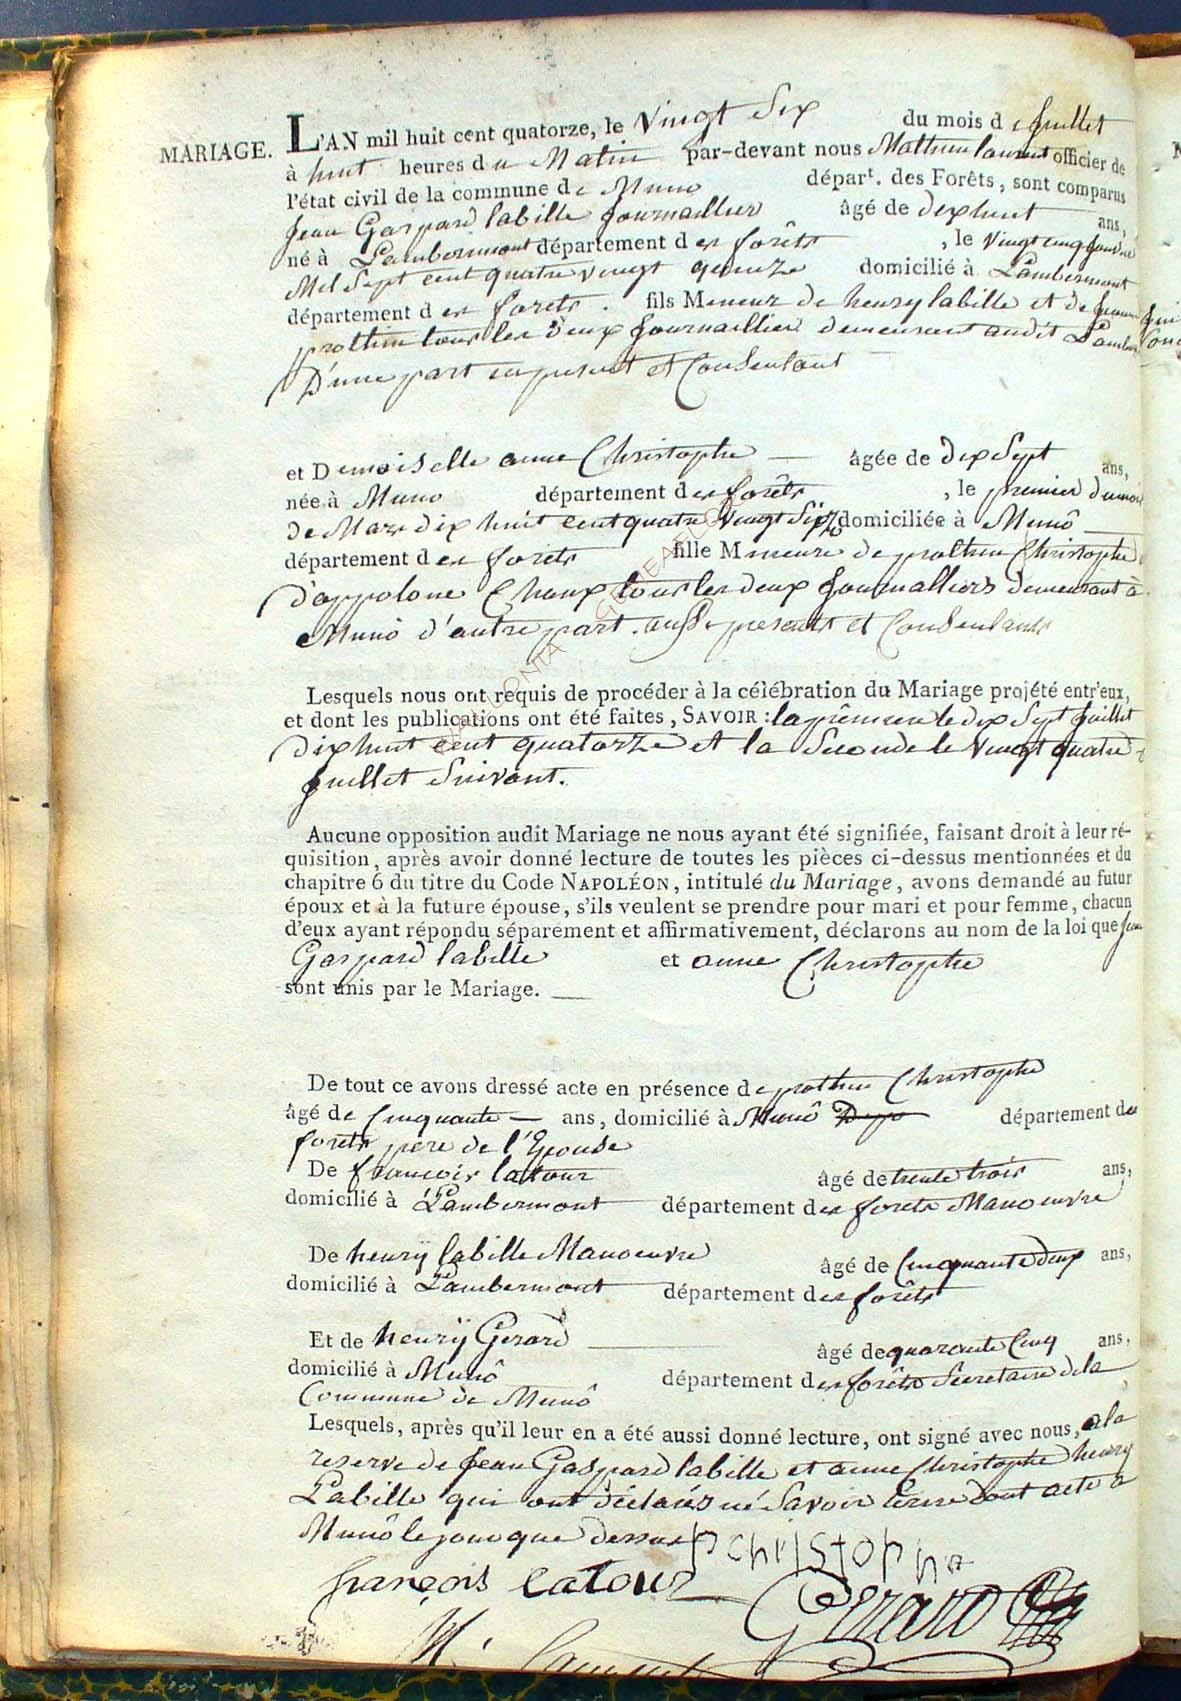 MARIAGE. L'AN mil huit cent quatorze, le Vingt Six du mois de Juillet
à huit heures du Matin par-devant nous Mathieu laurent officier de
l'état civil de la commune de Muno départ. des Forêts, sont comparus
Jean Gaspard labille Journaillier âgé de dixhuit ans,
né à Lambermont département des forêts, le Vingt cinq
Mil Sept cent quatre vingt quinze domicilié à Lambermont
département des forets. fils Mineur de henry labille et de
tous les deux Journaillier demeurant audit
D'une part icy present et Consentant
et Demoiselle anne Christophe — âgée de dix Sept ans,
née à Muno département des forêts, le premier du mois
de Mars dix huit cent quatre Vingt Seize domiciliée à Munô
département des forets fille Mineure de Christophe
d'appolone tous les deux Journalliers demeurant à
Munô d'autre part. aussi presents et Consentants
Lesquels nous ont requis de procéder à la célébration du Mariage projété entr'eux,
et dont les publications ont été faites, SAVOIR : la première le dix Sept Juillet
dixhuit cent quatorze et la Seconde le Vingt quatre
Juillet Suivant.
Aucune opposition audit Mariage ne nous ayant été signifiée, faisant droit à leur ré-
quisition, après avoir donné lecture de toutes les pièces ci-dessus mentionnées et du
chapitre 6 du titre du Code NAPOLÉON, intitulé du Mariage, avons demandé au futur
époux et à la future épouse, s'ils veulent se prendre pour mari et pour femme, chacun
d'eux ayant répondu séparément et affirmativement, déclarons au nom de la loi que Jean
Gaspard labille et anne Christophe
sont unis par le Mariage.
De tout ce avons dressé acte en présence de Christophe
âgé de Cinquante — ans, domicilié à Munô département des
forêts père de l'Epouse
De francois latour âgé de trente trois ans,
domicilié à Lambermont département des forets Manoeuvre
De henrÿ labille Manoeuvre âgé de Cinquante deux ans,
domicilié à Lambermont département des forêts
Et de henrÿ Gerard âgé de quarente Cinq ans,
domicilié à Munô département des forêts Secretaire de la
Commune de Munô
Lesquels, après qu'il leur en a été aussi donné lecture, ont signé avec nous, a la
reserve de Jean Gaspard labille et anne Christophe henry
Labille qui ont déclarés né Savoir écrire dont acte a
Munô le jour que dessus p christophe
françois latour Gerard
M. Laurent
WALLONIA GENEALOGIE